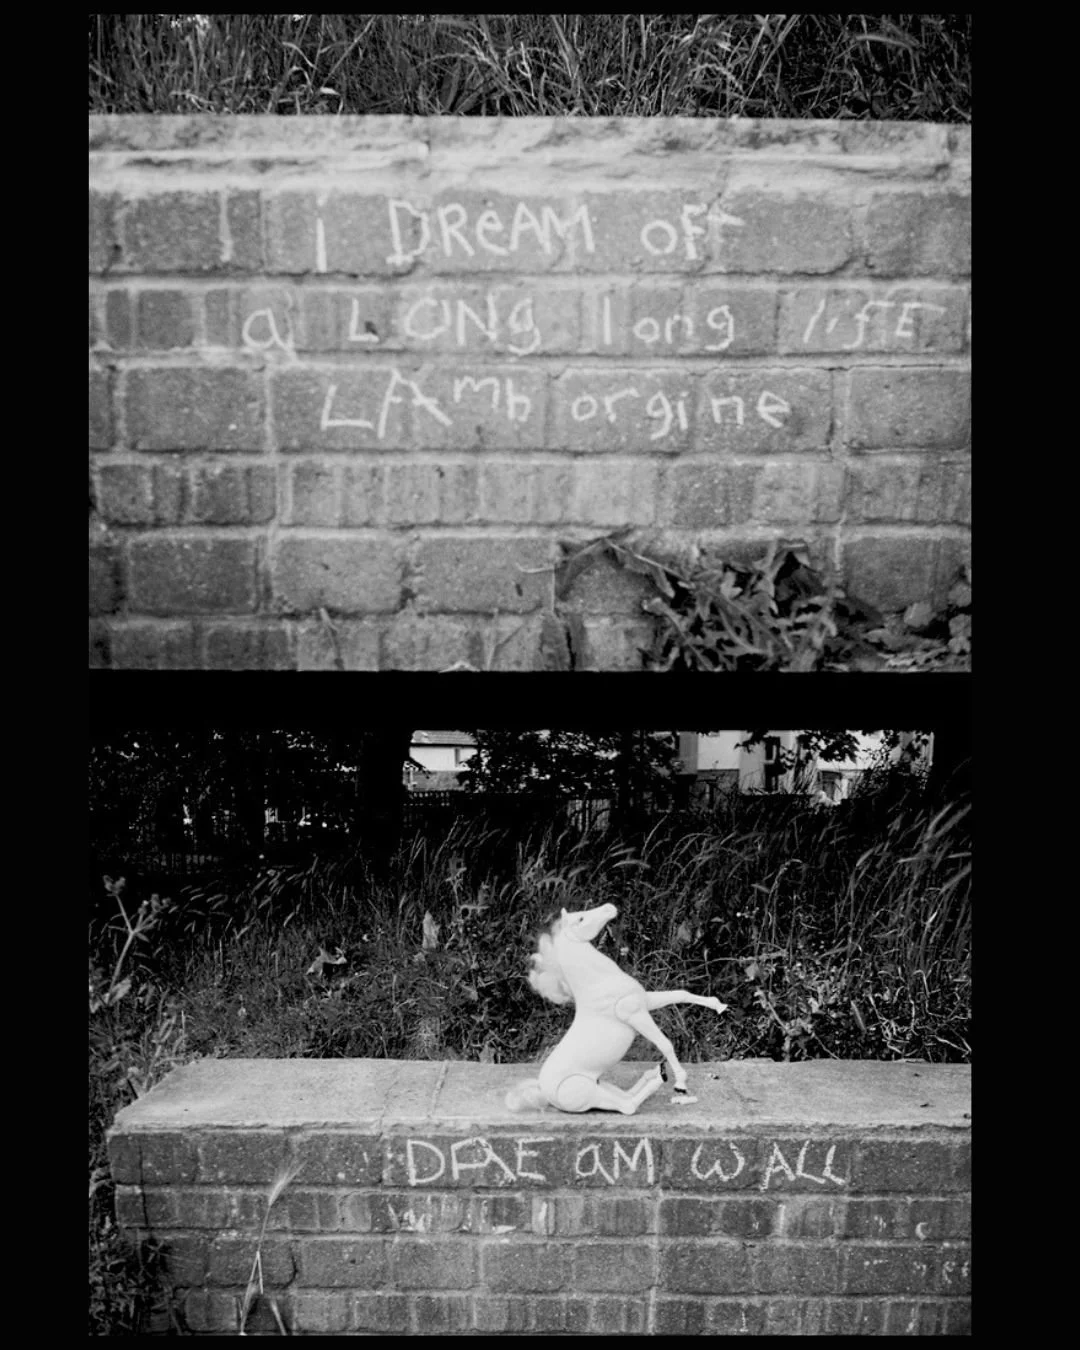 i DREAM oF
a LONg long lifE
LAmborgine
DREamWALL